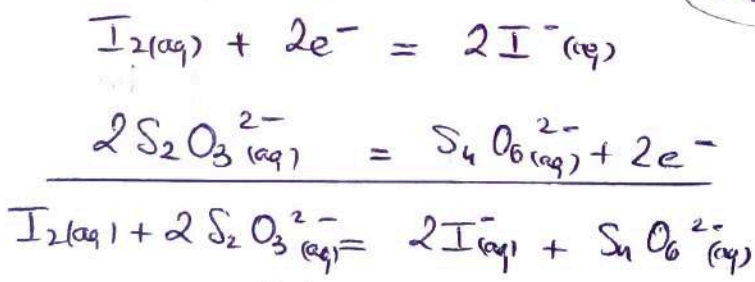 I₂(aq) + 2e⁻ = 2I⁻(aq)
2S₂O₃²⁻(aq) = S₄O₆²⁻(aq) + 2e⁻
I₂(aq) + 2S₂O₃²⁻(aq) = 2I⁻(aq) + S₄O₆²⁻(aq)